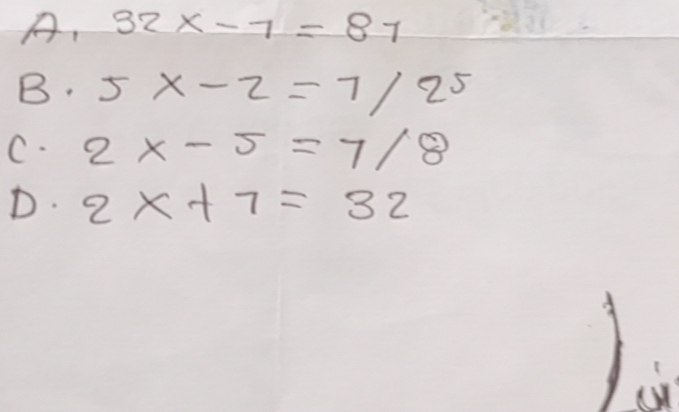 A. 32x-1=81
B. 5x-2=1/25
C. 2x-5=1/8
D. 2x+1=32